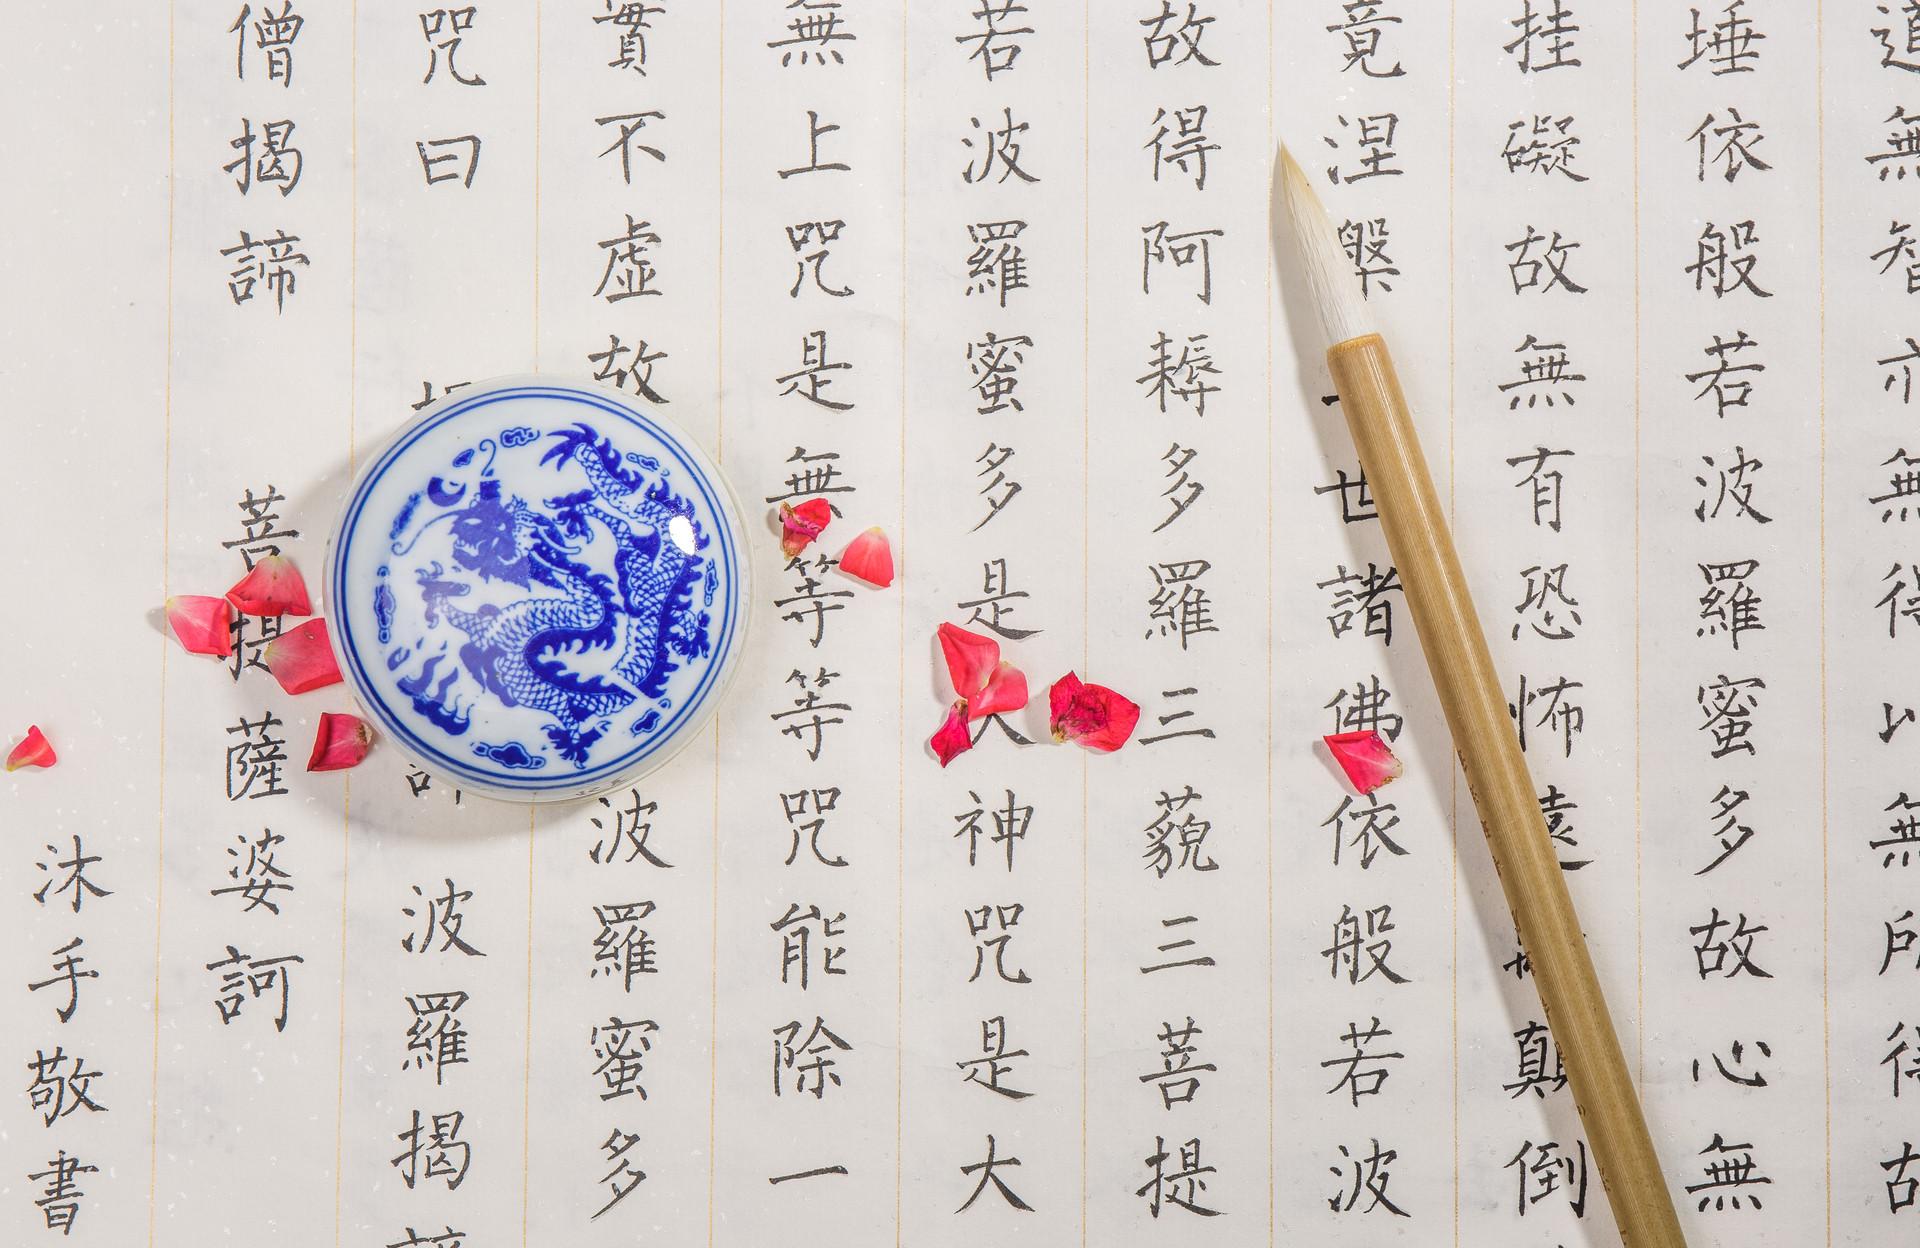 道無智亦無得以無所得故
埵依般若波羅蜜多故心無
挂礙故無有恐怖遠顛倒
竟涅槃世諸佛依般若波
故得阿耨多羅三藐三菩提
若波羅蜜多是神咒是大
無上咒是無等等咒能除一
實不虛故波羅蜜多
咒曰波羅揭諦
僧揭諦菩提薩婆訶
沐手敬書